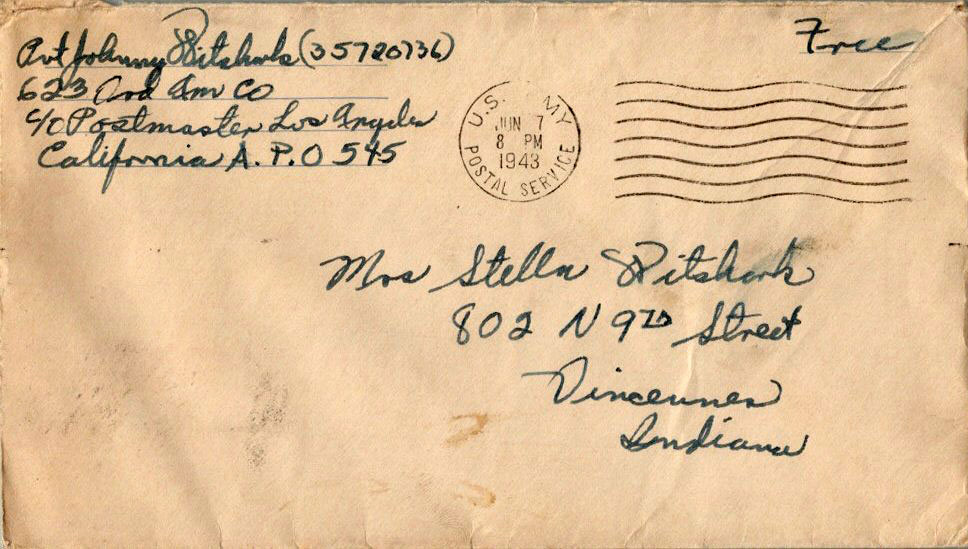 Pvt Johnny Pitshark (35720736)
Free
623 Ord Am Co
c/o Postmaster Los Angeles
California A.P.O 545
U.S. MY
JUN 7
8 PM
1943
POSTAL SERVICE
Mrs Stella Pitshark
802 N 9TH Street
Vincennes
Indiana